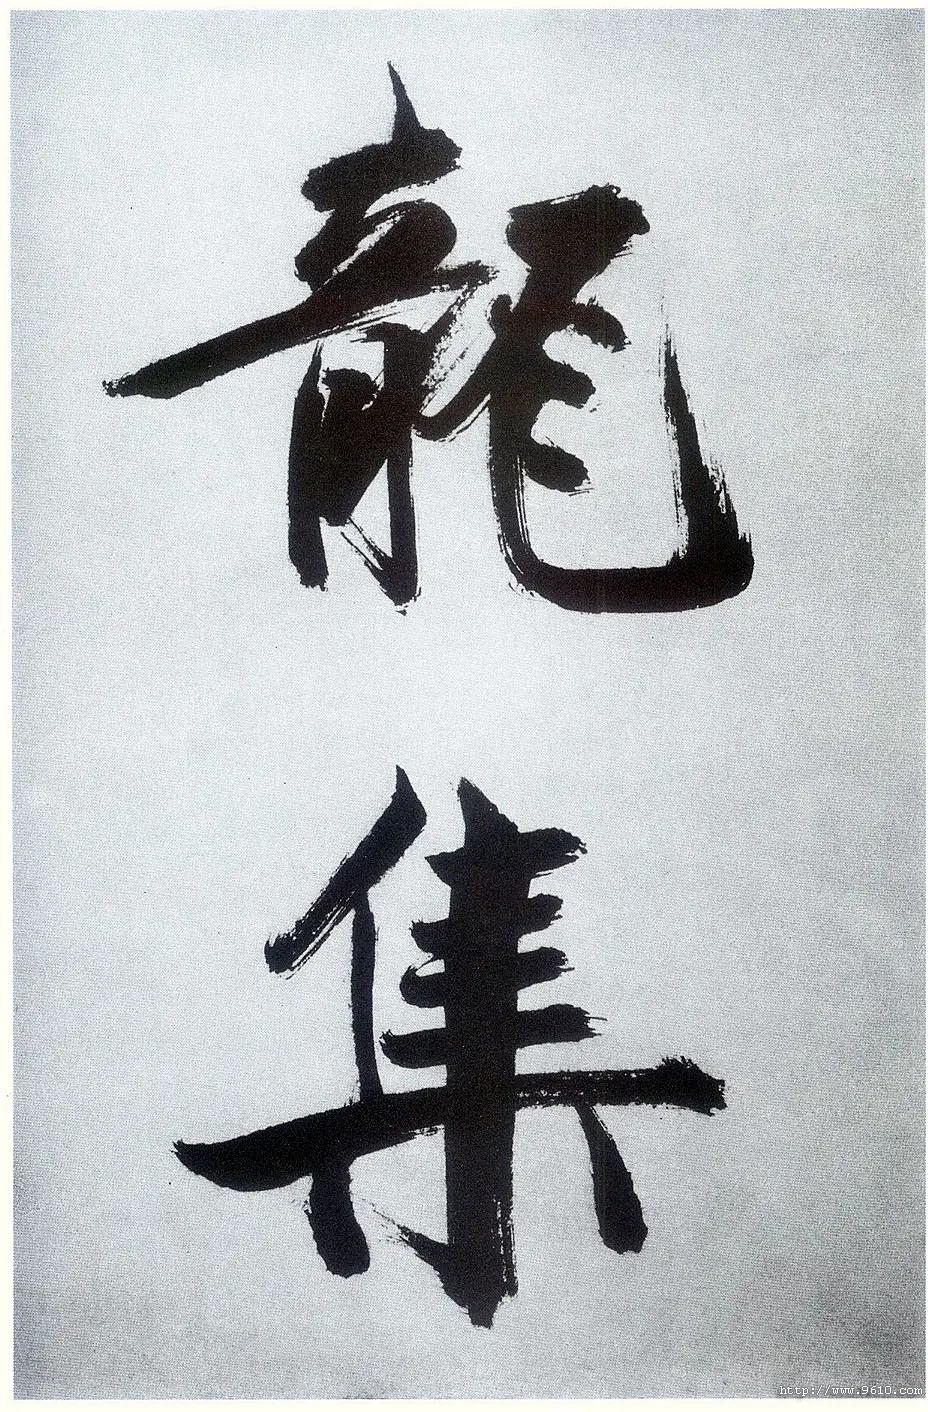 龍
集
http://www.9610.com